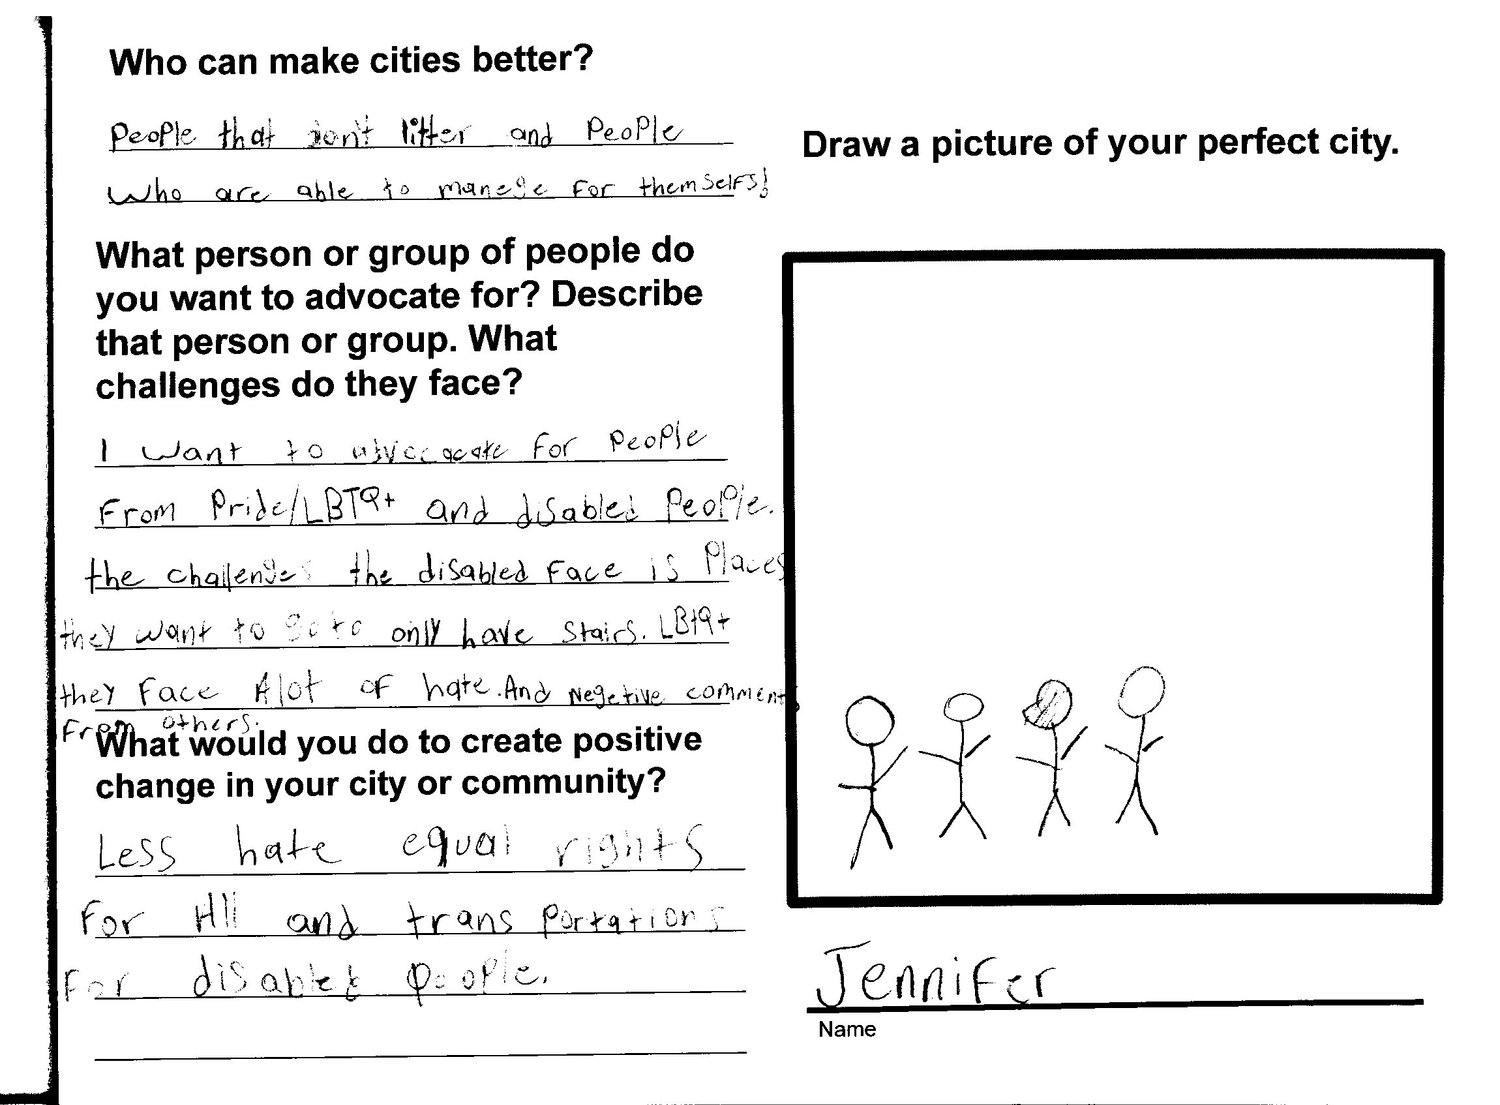 Who can make cities better?
People that don't litter and People
Who are able to manege For themselfs!
What person or group of people do
you want to advocate for? Describe
that person or group. What
challenges do they face?
I want to for People
From Pride/LBTQ+ and disabled People.
the challenges the disabled Face is Places
they want to go to only have stairs. LBtQ+
they Face Alot of hate. And Negetive comments
From others.
What would you do to create positive
change in your city or community?
Less hate equal rights
For All and trans portations
For disabled people.
Draw a picture of your perfect city.
Jennifer
Name